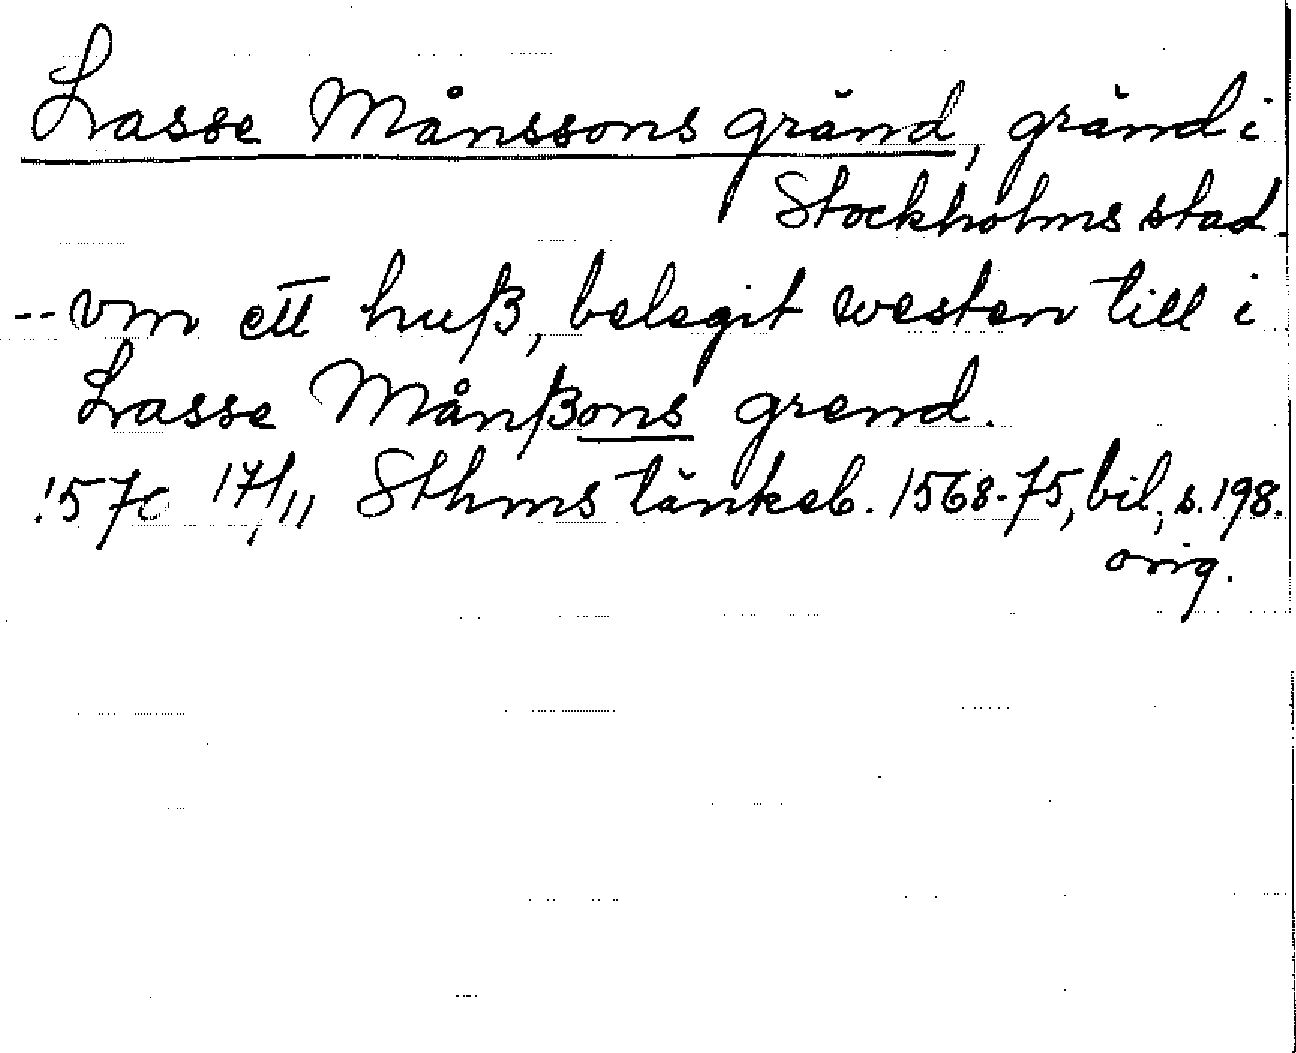 Lasse Månssons gränd, gränd i
Stockholms stad.
-- vm ett huß, belegit westen till i
Lasse Månßons grend.
1570 17/11 Sthms tänkeb. 1568-75, bil., s. 198.
orig.